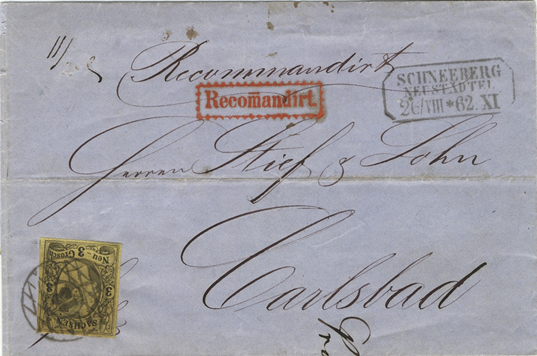 Recommandirt
Recom̄andirt.
SCHNEEBERG
NEUSTÄDTEL
26/VIII*62.XI
Herren Stief & Sohn
Carlsbad
Neu-3-Grosch.
3 3
SACHSEN